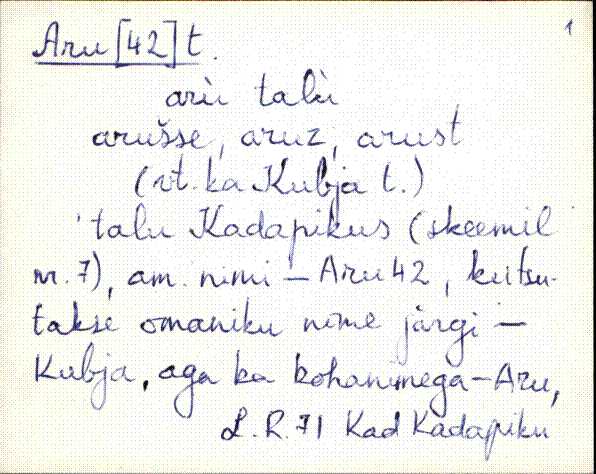 1
Aru [42] t.
arù talù
arušse, aruz, arust
(vt. ka Kubja t.)
talu Kadapikus (skeemil
nr. 7), am. nimi – Aru 42, kutsu-
takse omaniku nime järgi –
Kubja, aga ka kohanimega – Aru,
L. R. 71 Kad Kadapiku